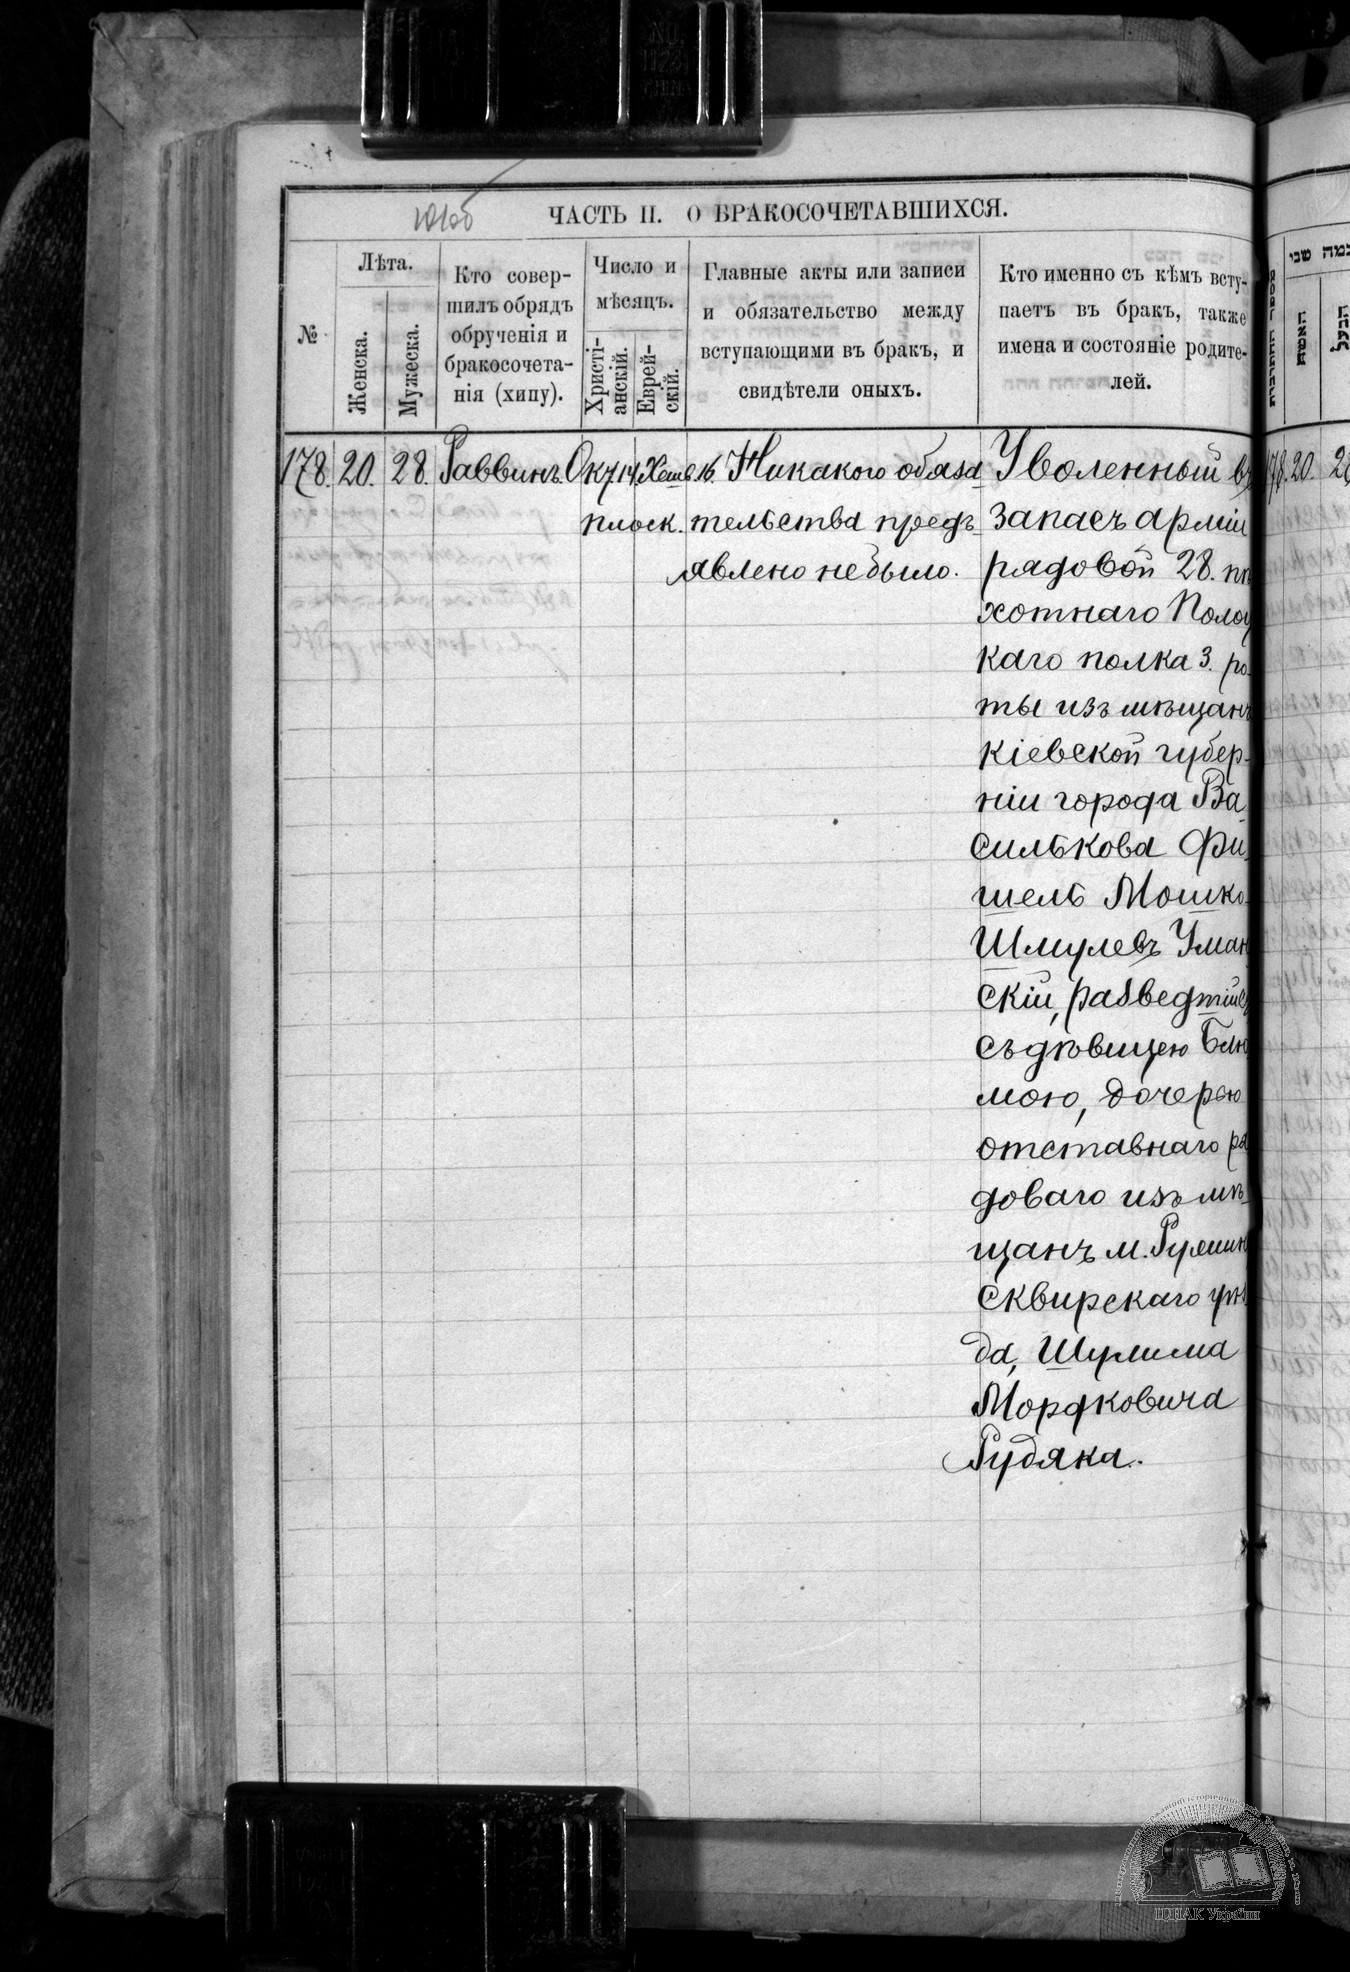 ЧАСТЬ II. О БРАКОСОЧЕТАВШИХСЯ.
№
Лѣта.
Женска.
Мужеска.
Кто совер-
шилъ обрядъ
обрученія и
бракосочета-
нія (хипу).
Число и
мѣсяцъ.
Христі-
анскій.
Еврей-
скій.
Главные акты или записи
и обязательство между
вступающими въ бракъ, и
свидѣтели оныхъ.
Кто именно съ кѣмъ всту-
паетъ въ бракъ, также
имена и состояніе родите-
лей.
178. 20. 28. Раввинъ. Окт 14 Хеш 16. Никакого обяза-
плоск. тельства предъ-
явлено не было.
Уволенный въ
запасъ арміи
рядовой 28. пѣ
хотнаго Полоц
каго полка 3. ро-
ты изъ мѣщанъ
Кіевской губер-
ніи города Ва
силькова Фи-
шель Мошко-
Шмулевъ Уман
скій, разведшійся
съ дѣвицею Блю
мою, дочерью
отставнаго ря
доваго изъ мѣ-
щанъ м. Ружинъ
Сквирскаго уѣз
да, Шулима
Мордковича
Рудяка.
מספר החתונות
האשה
הבעל
כמה שני
178. 20. 28
ЦДІАК України